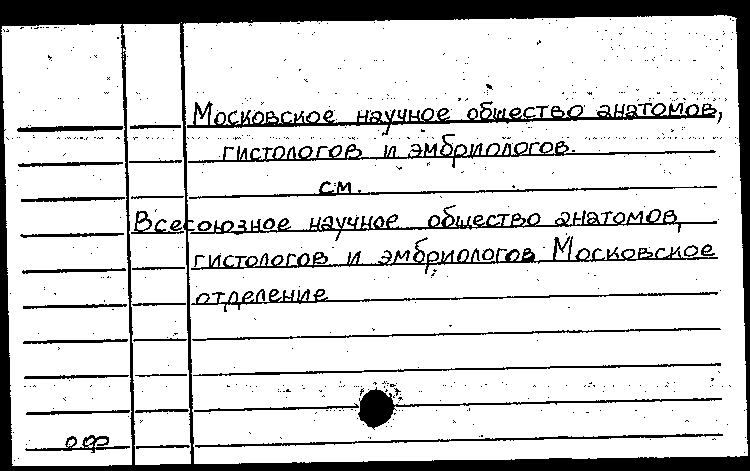 Московское научное общество анатомов,
гистологов и эмбриологов.
см.
Всесоюзное научное общество анатомов,
гистологов и эмбриологов. Московское
отделение
оф